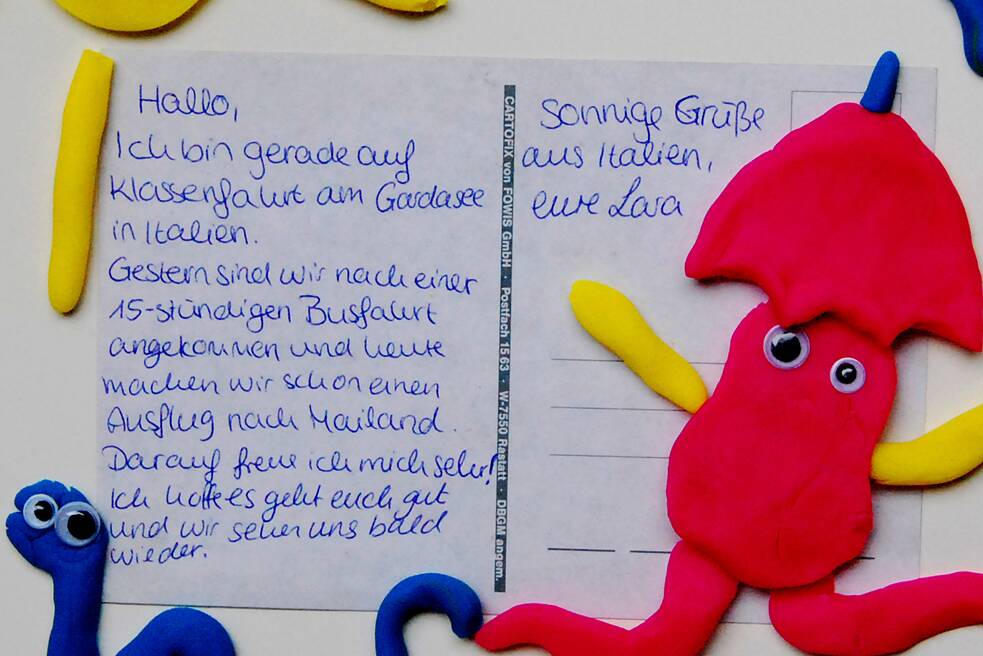 Hallo,
Ich bin gerade auf
Klassenfahrt am Gardasee
in Italien.
Gestern sind wir nach einer
15-stündigen Busfahrt
angekommen und heute
machen wir schon einen
Ausflug nach Mailand.
Darauf freue ich mich sehr!
Ich hoffe es geht euch gut
und wir sehen uns bald
wieder.
CARTOFIX von FOWIS GmbH · Postfach 1563 · W-7550 Rastatt · DBGM angem.
Sonnige Grüße
aus Italien,
eure Lara